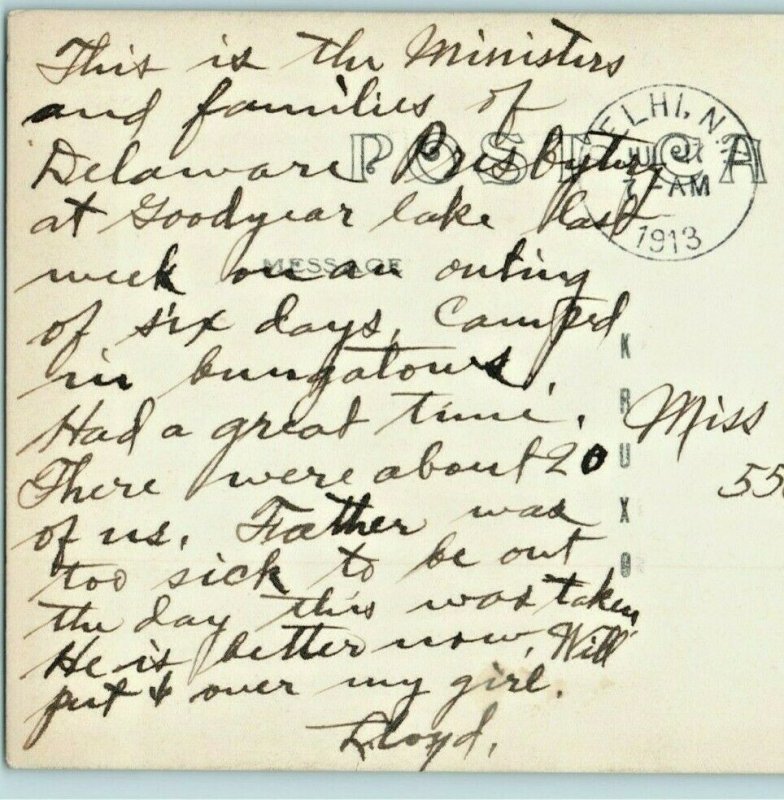 This is the Ministers
and families of
Delaware Presbytery
at Goodyear lake last
week on an outing
of six days, Camped
in bungalows,
Had a great time.
There were about 20
of us. Father was
too sick to be out
the day this was taken
He is better now, Will
put + over my girl.
Lloyd,
POST CA
MESSAGE
ELHI, N.
7-AM
1913
KRUXO
Miss
55